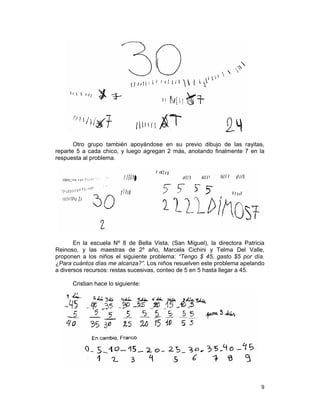 30
7
7
7
AT
24
Otro grupo también apoyándose en su previo dibujo de las rayitas,
reparte 5 a cada chico, y luego agregan 2 más, anotando finalmente 7 en la
respuesta al problema.
5 5 5 5
30
2 2 2 2 DIMOS 7
2
En la escuela Nº 8 de Bella Vista, (San Miguel), la directora Patricia
Reinoso, y las maestras de 2º año, Marcela Cichini y Telma Del Valle,
proponen a los niños el siguiente problema: “Tengo $ 45, gasto $5 por día.
¿Para cuántos días me alcanza?”. Los niños resuelven este problema apelando
a diversos recursos: restas sucesivas, conteo de 5 en 5 hasta llegar a 45.
Cristian hace lo siguiente:
45 40 35 30 25 20 15 10
5 5 5 5 5 5 5 5
40 35 30 25 20 15 10 5
En cambio, Franco
0-5-10-15-20-25-30-35-40-45
1 2 3 4 5 6 7 8 9
9